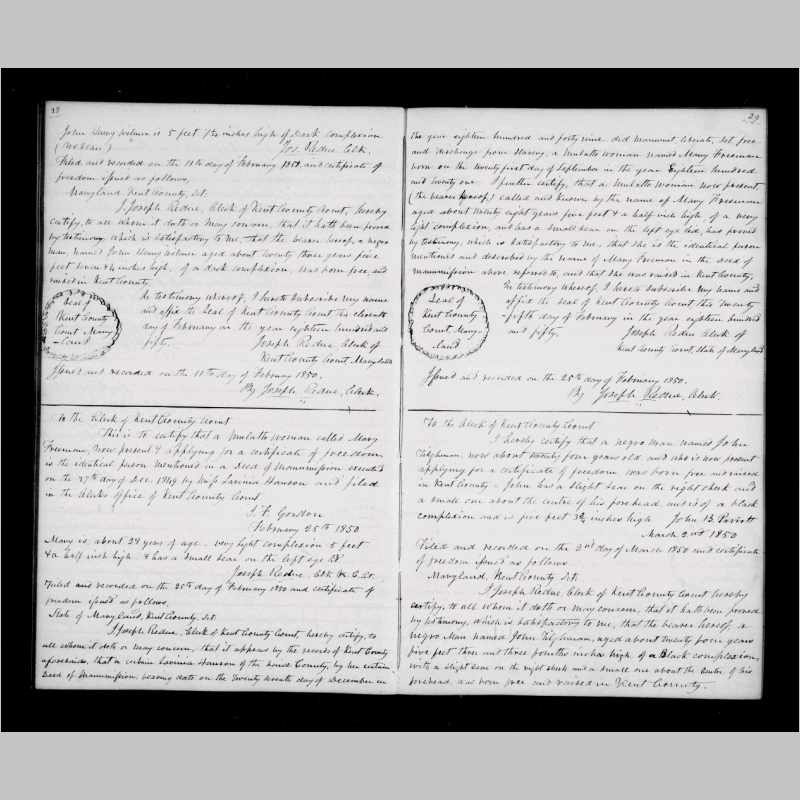 28
John Henry Wilmer is 5 feet 7 1/2 inches high of Dark Complexion
(Wilmer) Jos. Redue Clk.
Filed and recorded on the 11th day of February 1850, and certificate of
freedom issued as follows,
Maryland, Kent County, Sct.
I Joseph Redue, Clerk of Kent County Court, hereby
certify, to all whom it doth or may concern, that it hath been proved
by testimony, which is satisfactory to me, that the bearer hereof, a negro
man, named John Henry Wilmer aged about twenty three years five
feet inches high, of a dark complexion, was born free, and
raised in Kent County.
Seal of
Kent County
Court Mary
-land
In testimony whereof, I hereto subscribe my name
and affix the Seal of Kent County Court this eleventh
day of February in the year eighteen hundred and
fifty. Joseph Redue Clerk of
Kent County Court Maryland
Issued and recorded on the 11th day of February 1850.
By Joseph Redue, Clerk.
To the Clerk of Kent County Court
This is to certify that a mulatto woman called Mary
Freeman, now present & applying for a certificate of freedom
is the identical person mentioned in a Deed of Manumission executed
on the 27th day of Dec. 1849 by Miss Lavinia Hanson and filed
in the Clerks Office of Kent County Court
Gordon
February 25th 1850
Mary is about 28 years of age very light complexion 5 feet
& a half inch high & has a small scar on the left eye lid
Joseph Redue, Clk K. C. Ct.
Filed and recorded on the 25th day of February 1850 and certificate of
freedom issued as follows,
State of Maryland, Kent County, Sct.
I Joseph Redue, Clerk of Kent County Court hereby certify, to
all whom it doth or may concern, that it appears by the records of Kent County
aforesaid, that a certain Lavinia Hanson of the County, by her certain
Deed of Manumission, bearing date on the twenty seventh day of December in
29
the year eighteen hundred and forty nine did manumit, liberate, set free
and discharge from slavery, a mulatto woman named Mary Freeman
born on the twenty first day of September in the year Eighteen hundred
and twenty one. I further certify, that a mulatto woman now present
(the bearer hereof) called and known by the name of Mary Freeman
aged about twenty eight years five feet & a half inch high, of a very
light complexion, and has a small scar on the left eye lid, has proved
by testimony, which is satisfactory to me, that she is the identical person
mentioned and described by the name of Mary Freeman in the deed of
manumission above referred to, and that she was raised in Kent County.
Seal of
Kent County
Court Mary-
-land
In testimony whereof, I hereto subscribe my name and
affix the Seal of Kent County Court this twenty
-fifth day of February in the year eighteen hundred
and fifty. Joseph Redue Clerk of
Kent County Court, State of Maryland
Issued and recorded on the 25th day of February 1850.
By Joseph Redue, Clerk.
To the Clerk of Kent County Court
I hereby certify that a negro man named John
Tilghman, now about twenty four years old and who is now present
applying for a certificate of freedom was born free and raised
in Kent County - John has a slight scar on the right cheek and
a small one about the centre of his forehead, and is of a black
complexion and is five feet 3 inches high John B. Parrott
March 2nd 1850
Filed and recorded on the 2nd day of March 1850 and certificate
of freedom issued as follows
Maryland, Kent County Sct.
I Joseph Redue, Clerk of Kent County Court hereby
certify, to all whom it doth or may concern, that it hath been proved
by testimony, which is satisfactory to me, that the bearer hereof a
negro Man named John Tilghman, aged about twenty four years
five feet three and three fourths inches high, of a Black complexion,
with a slight scar on the right cheek and a small one about the centre of his
forehead, was born free and raised in Kent County.